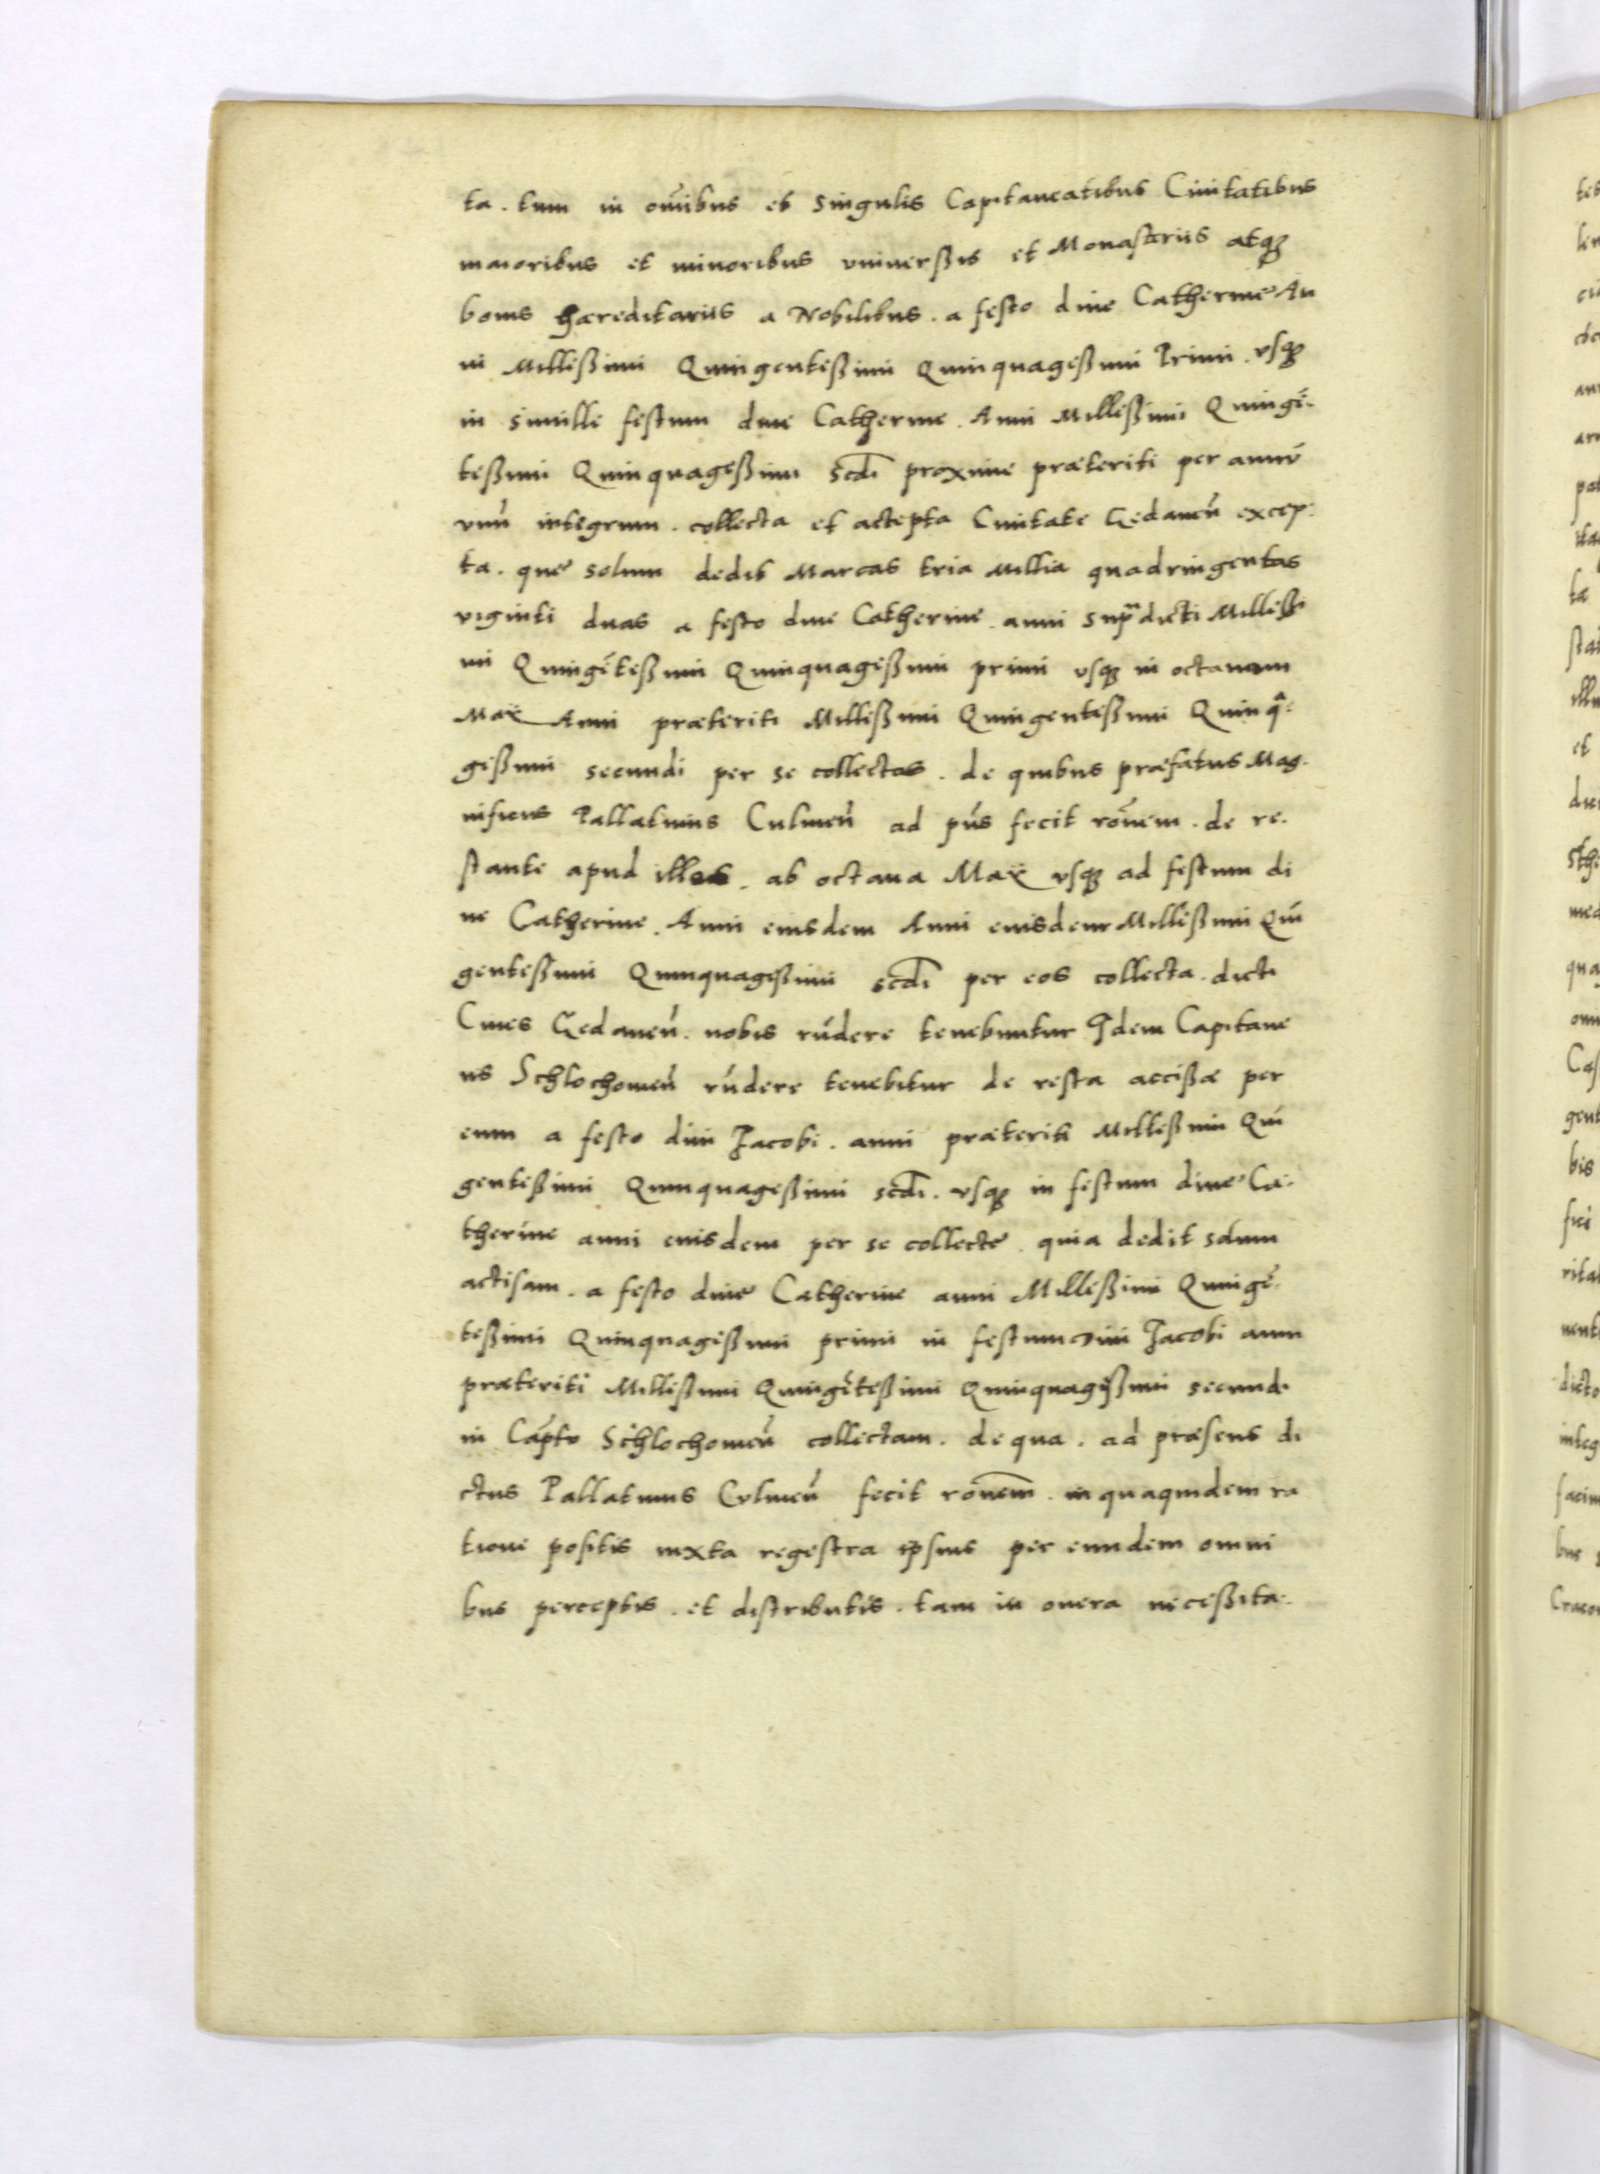 ta. tum in om̃ibus et singulis Capitaneatibus Ciuitatibus
maioribus et minoribus vniuersßis et Monasteriis atqꝫ
bonis hæreditariis a Nobilibus. a festo diue Catherinę An
ni Milleßimi Quingenteßimi Quinquageßimi Primi. vsqꝫ
in simille festum diue Catherine. Anni Milleßimi Quingẽ.
teßimi Quinquageßimi scd̃i proxime præteriti per annũ
vnũ integrum. collecta et accepta Ciuitate Gedaneñ excep.
ta. quę solum dedit Marcas tria Millia quadringentas
viginti duas a festo diue Catherine. anni supradicti Milleßi
mi Quingẽteßimi Quinquageßimi primi vsqꝫ in octauam
Maÿ Anni præteriti Milleßimi Quingenteßimi Quinqᵃ.
geßimi secundi per se collectas. de quibus præfatus Mag.
nificus Pallatinus Culmeñ ad pñs fecit rõnem. de re.
stante apud illos. ab octaua Maÿ vsqꝫ ad festum di
ue Catherine. Anni eiusdem Anni eiusdem Milleßimi Quĩ
genteßimi Quinquageßimi scd̃i per eos collecta. dicti
Ciues Gedaneñ. nobis rñdere tenebuntur Idem Capitane
us Schlochoueñ rñdere tenebitur de resta accißæ per
eum a festo diui Jacobi. anni præteriti Milleßimi Quĩ
genteßimi Quinquageßimi scd̃i. vsqꝫ in festum diuę Ca.
therine anni eiusdem per se collectę. quia dedit solum
accisam. a festo diuę Catherine anni Milleßimi Quingẽ.
teßimi Quinquageßimi primi in festum diui Jacobi anni
præteriti Milleßimi Quingẽteßimi Quinquageßimi secundi
in Capto Schlochoueñ collectam. de qua. ad præsens di
ctus Pallatinus Culmeñ fecit rõnem. in quaquidem ra
tione positis iuxta regestra ipsius per eundem omni
bus perceptis. et distributis. tam in onera necessita.